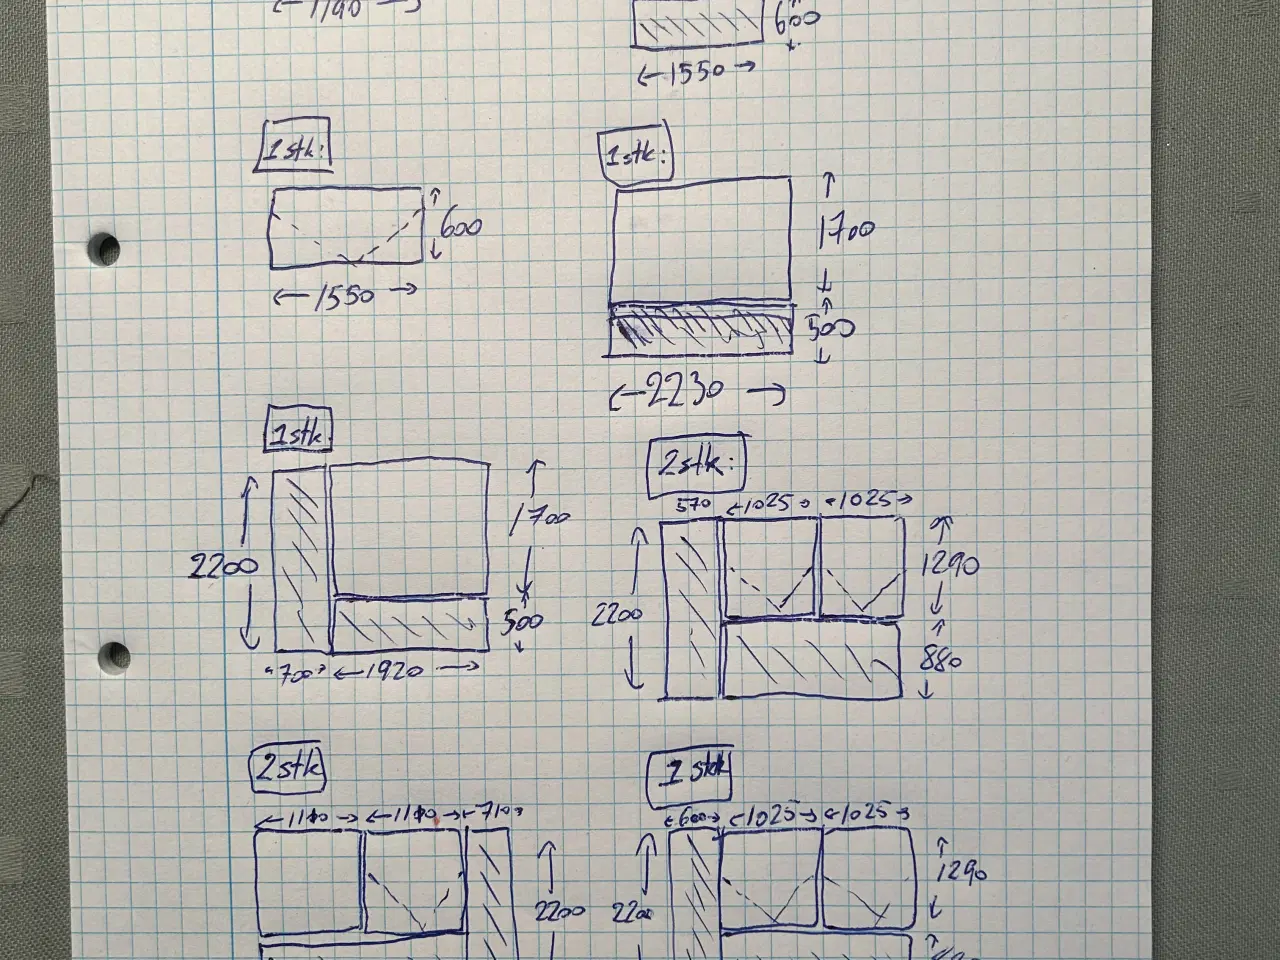 1190
600
1550
1stk:
600
1550
1stk:
1700
500
2230
1stk
2200
1700
500
700
1920
2stk:
570
1025
1025
2200
1290
880
2stk
710
2200
1stk
600
1025
1025
2200
1290